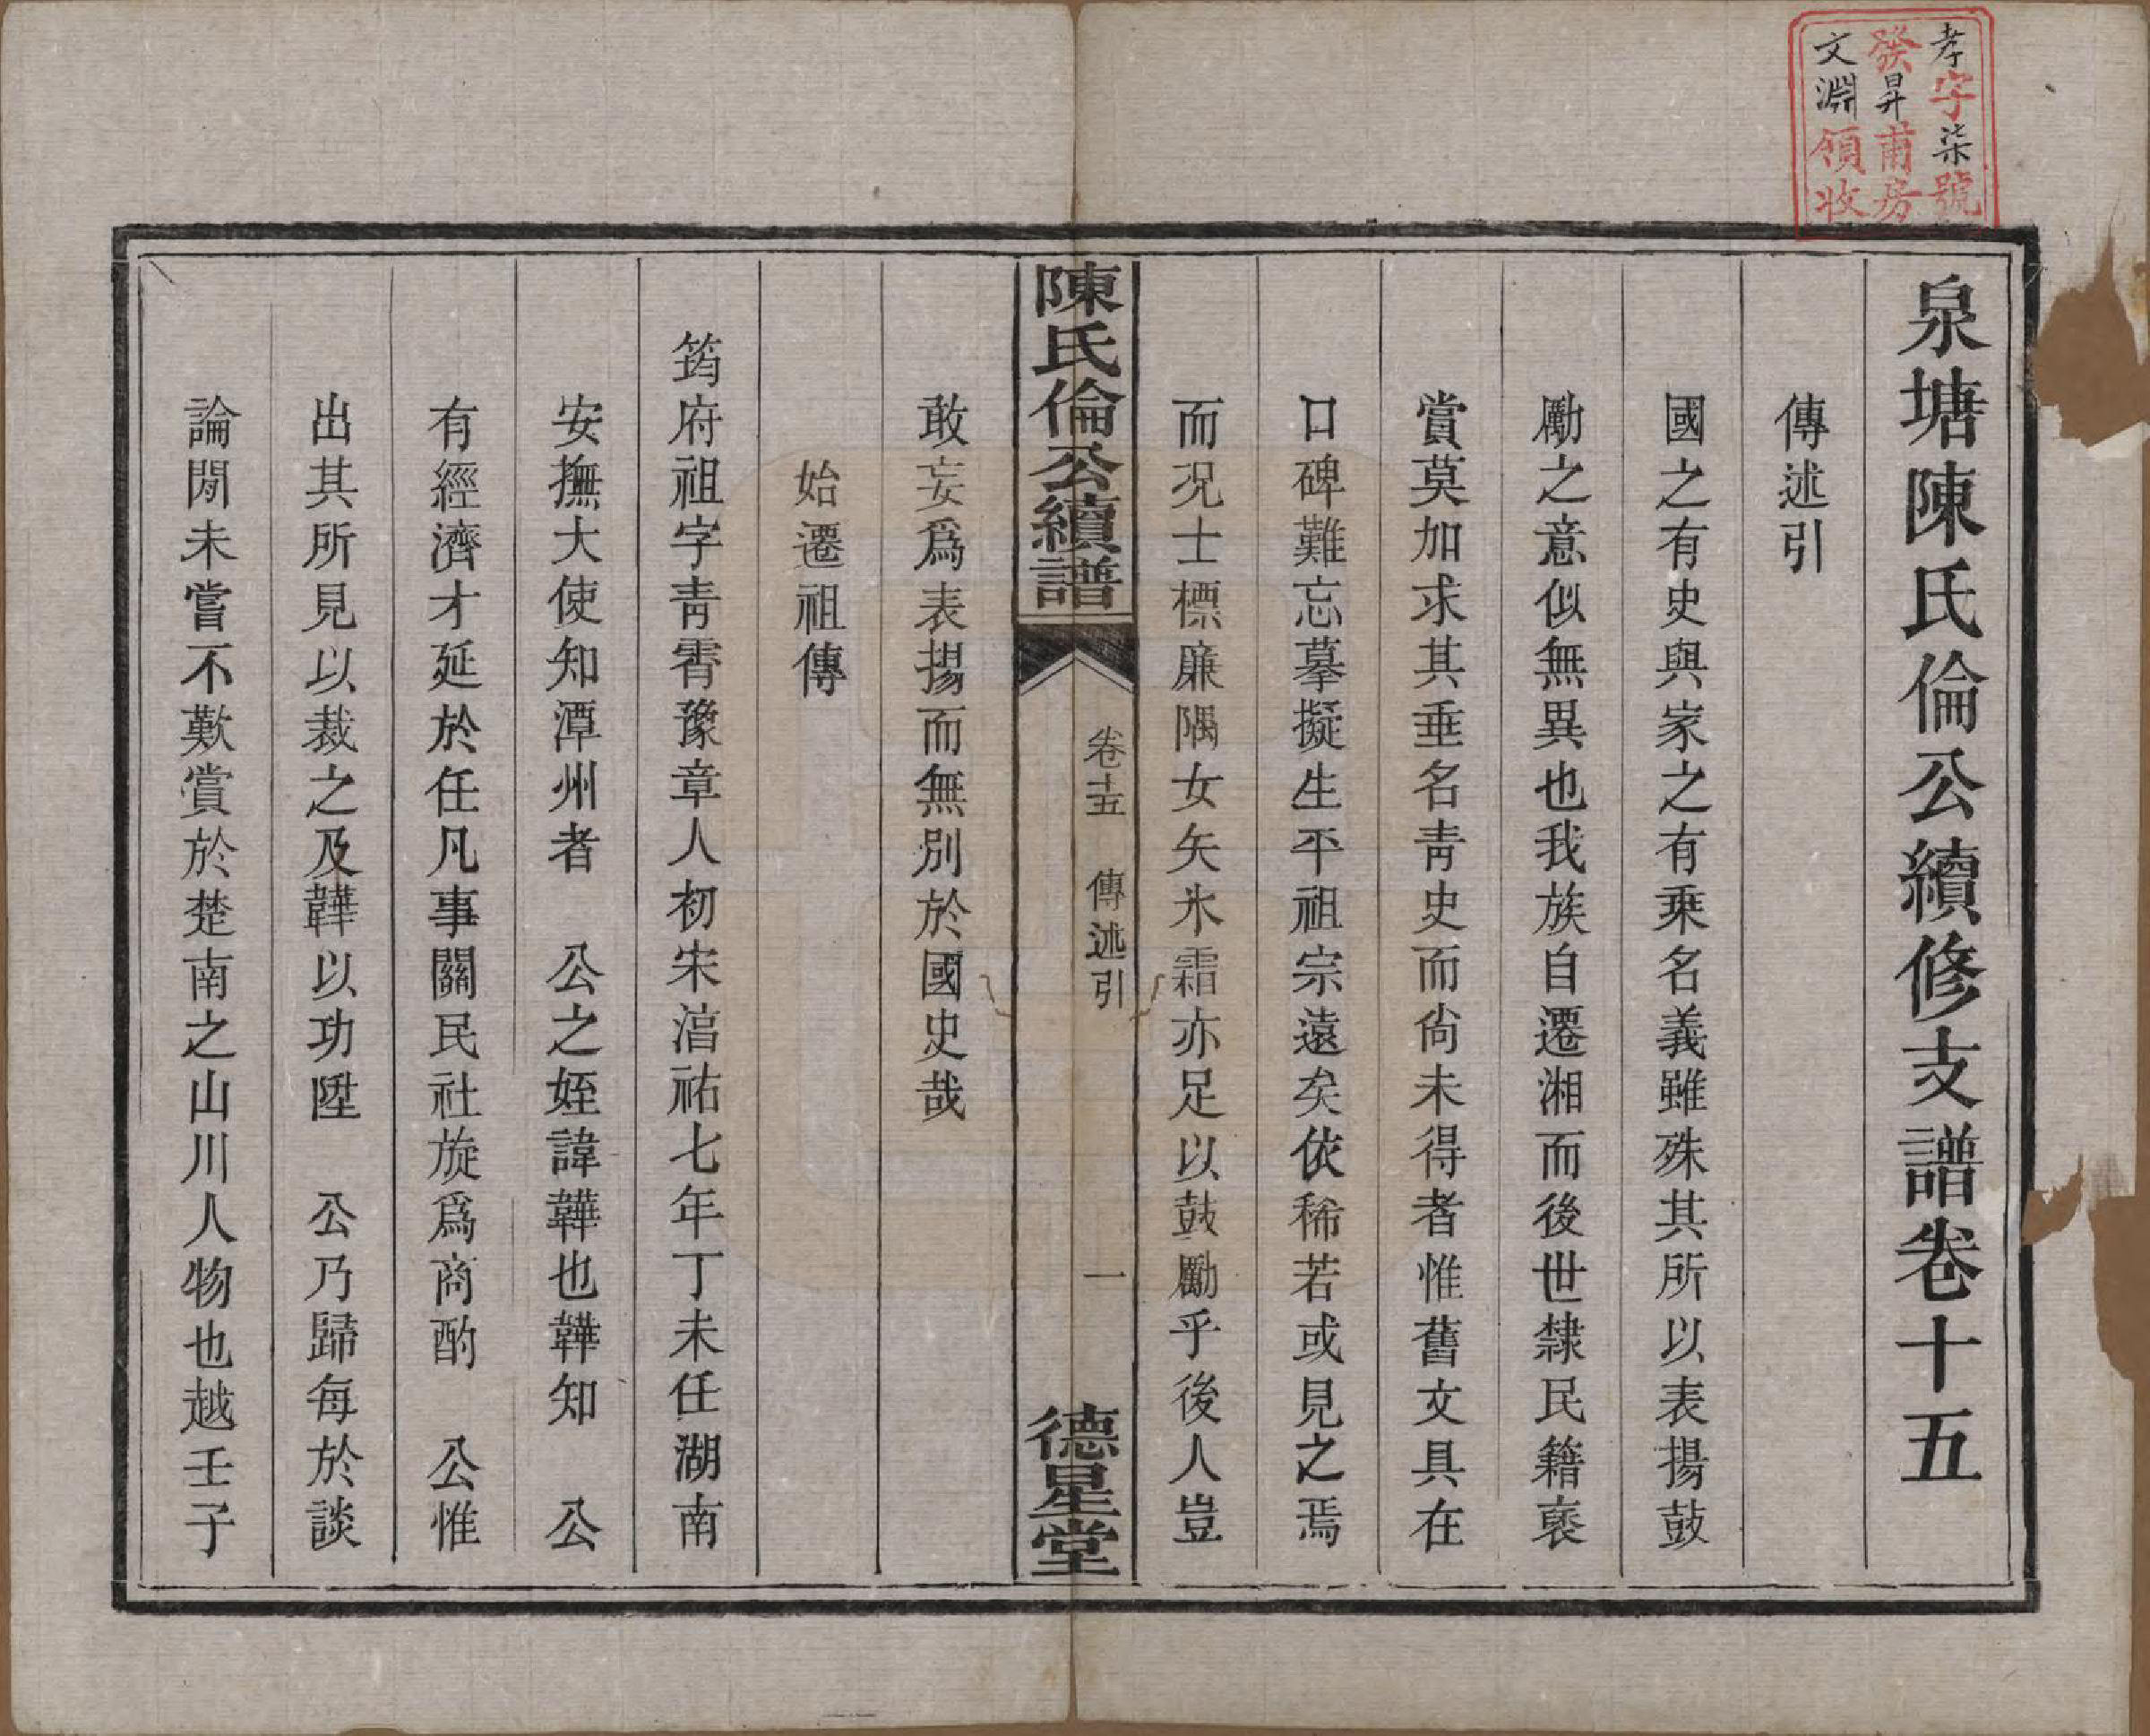 孝字柒號
發昇甫房
文淵領收
泉塘陳氏倫公續修支譜卷十五
傳述引
國之有史與家之有乘名義雖殊其所以表揚鼓
勵之意似無異也我族自遷湘而後世隸民籍褒
賞莫加求其垂名青史而尙未得者惟舊文具在
口碑難忘摹擬生平祖宗遠矣依稀若或見之焉
而况士標廉隅女矢氷霜亦足以鼓勵乎後人豈
陳氏倫公續譜
卷十五 傳述引
一
德星堂
敢妄爲表揚而無別於國史哉
始遷祖傳
筠府祖字靑霄豫章人初宋湻祐七年丁未任湖南
安撫大使知潭州者 公之姪諱韡也韡知 公
有經濟才延於任凡事關民社旋爲商酌 公惟
出其所見以裁之及韡以功陞 公乃歸每於談
論閒未嘗不歎賞於楚南之山川人物也越壬子